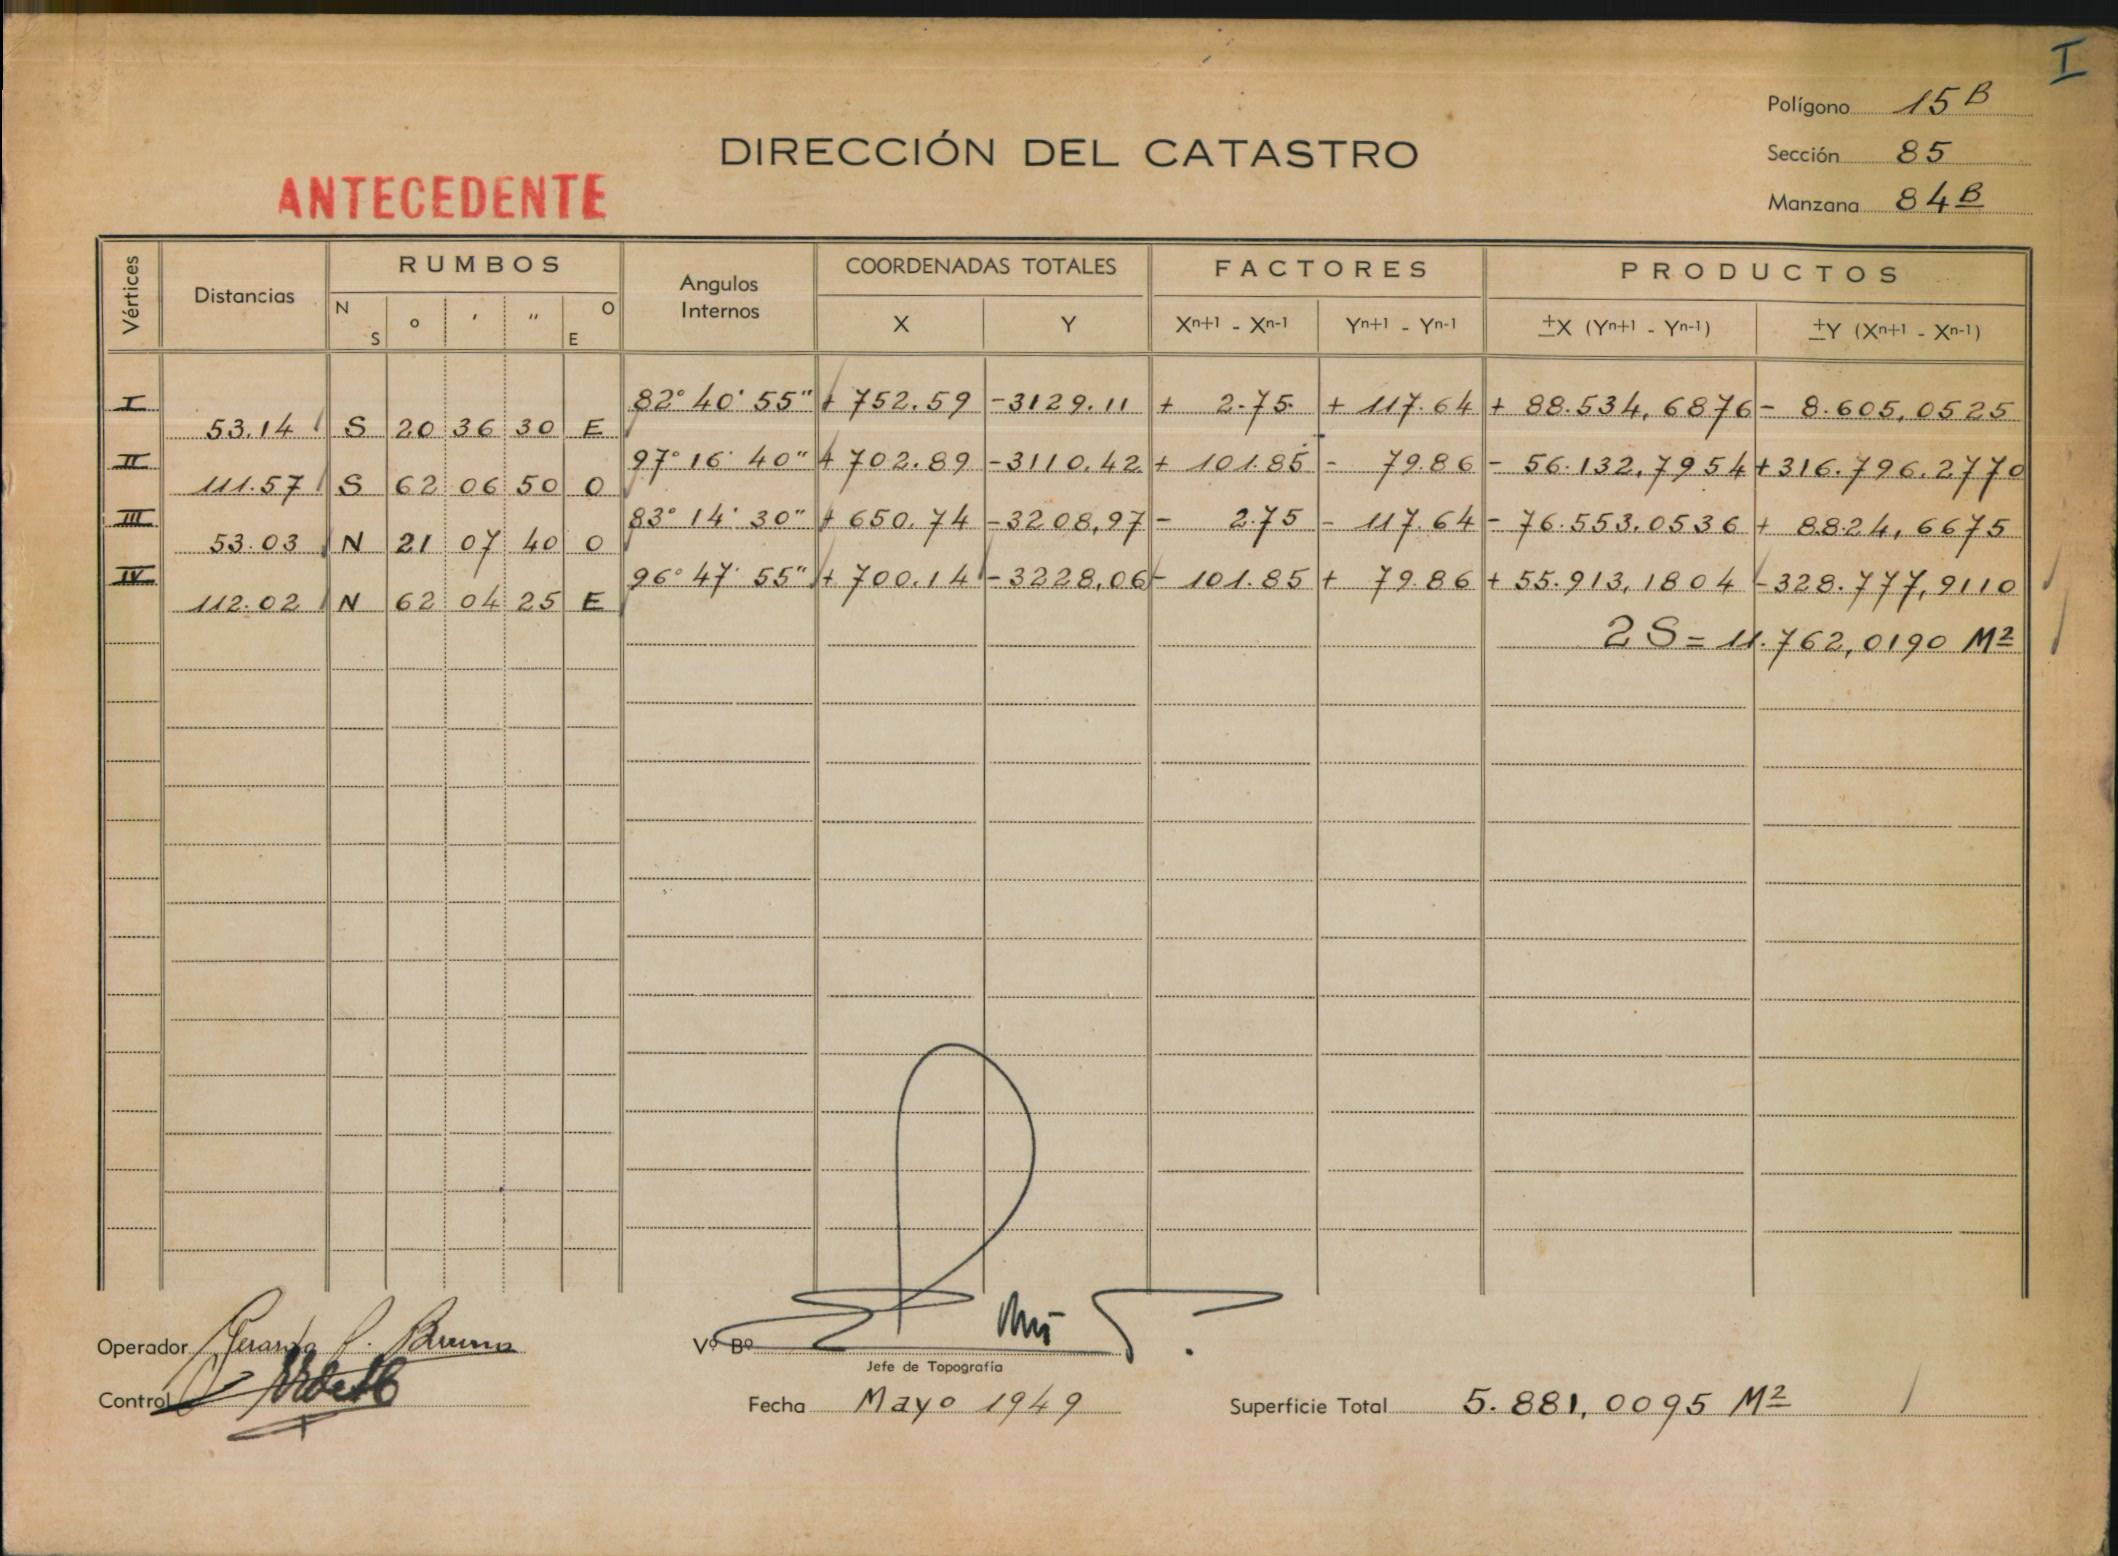 I
Polígono 15 B
DIRECCIÓN DEL CATASTRO
Sección 85
ANTECEDENTE
Manzana 84 B
Vértices Distancias RUMBOS Angulos Internos COORDENADAS TOTALES FACTORES PRODUCTOS
N S ° ' " O E X Y Xn+1 - Xn-1 Yn+1 - Yn-1 ±X (Yn+1 - Yn-1) ±Y (Xn+1 - Xn-1)
I 82° 40' 55" + 752.59 -3129.11 + 2.75 + 117.64 + 88.534,6876 - 8.605,0525
53.14 S 20 36 30 E
II 97° 16' 40" + 702.89 -3110.42 + 101.85 - 79.86 - 56.132,7954 +316.796.2770
111.57 S 62 06 50 O
III 83° 14' 30" + 650.74 -3208,97 - 2.75 - 117.64 - 76.553.0536 + 8.824,6675
53.03 N 21 07 40 O
IV 96° 47' 55" + 700.14 -3228,06 - 101.85 + 79.86 + 55.913,1804 -328.777,9110
112.02 N 62 04 25 E
2S = 11.762,0190 M²
Operador Gerardo Bruno
Vº Bº
Jefe de Topografía
Control
Fecha Mayo 1949
Superficie Total 5.881,0095 M²